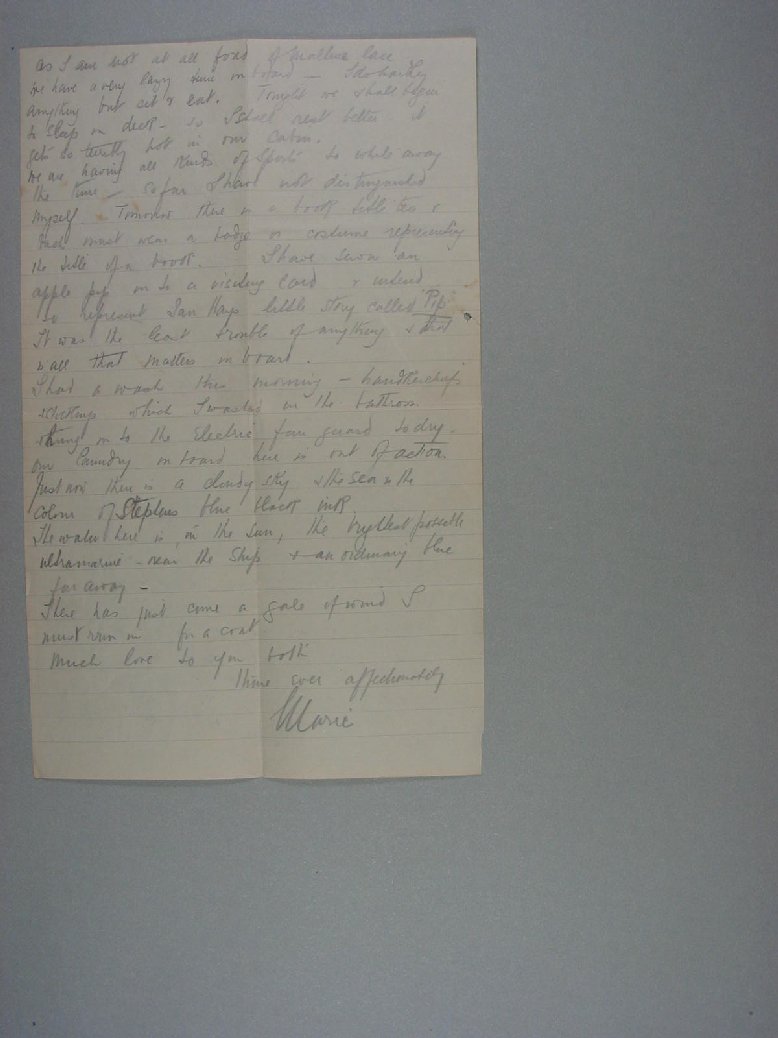 as I am not at all fond of Maltese lace
we have a very lazy time on board - I do hardly
anything but sit & eat. Tonight we shall begin
to sleep on deck - so I shall rest better - it
gets so terribly hot in our cabin.
We are having all kinds of Sports to while away
the time - so far I have not distinguished
myself. Tomorrow there is a book title tea &
each must wear a badge or costume representing
the title of a book. I have sewn an
apple pip on to a visiting card & intend
to represent Ian Hays little story called 'Pip'
It was the least trouble of anything & that
is all that matters on board.
I had a wash this morning - handkerchiefs
& stockings which I washed in the bathroom
& hung on to the Electric fan guard to dry -
our laundry on board here is out of action.
Just now there is a cloudy sky & the sea is the
colour of Stephens blue black ink
The water here is, in the sun, the brightest possible
ultramarine - near the ship & an ordinary blue
far away -
There has just come a gale of wind I
must run in for a coat
Much love to you both
Thine ever affectionately
Marie